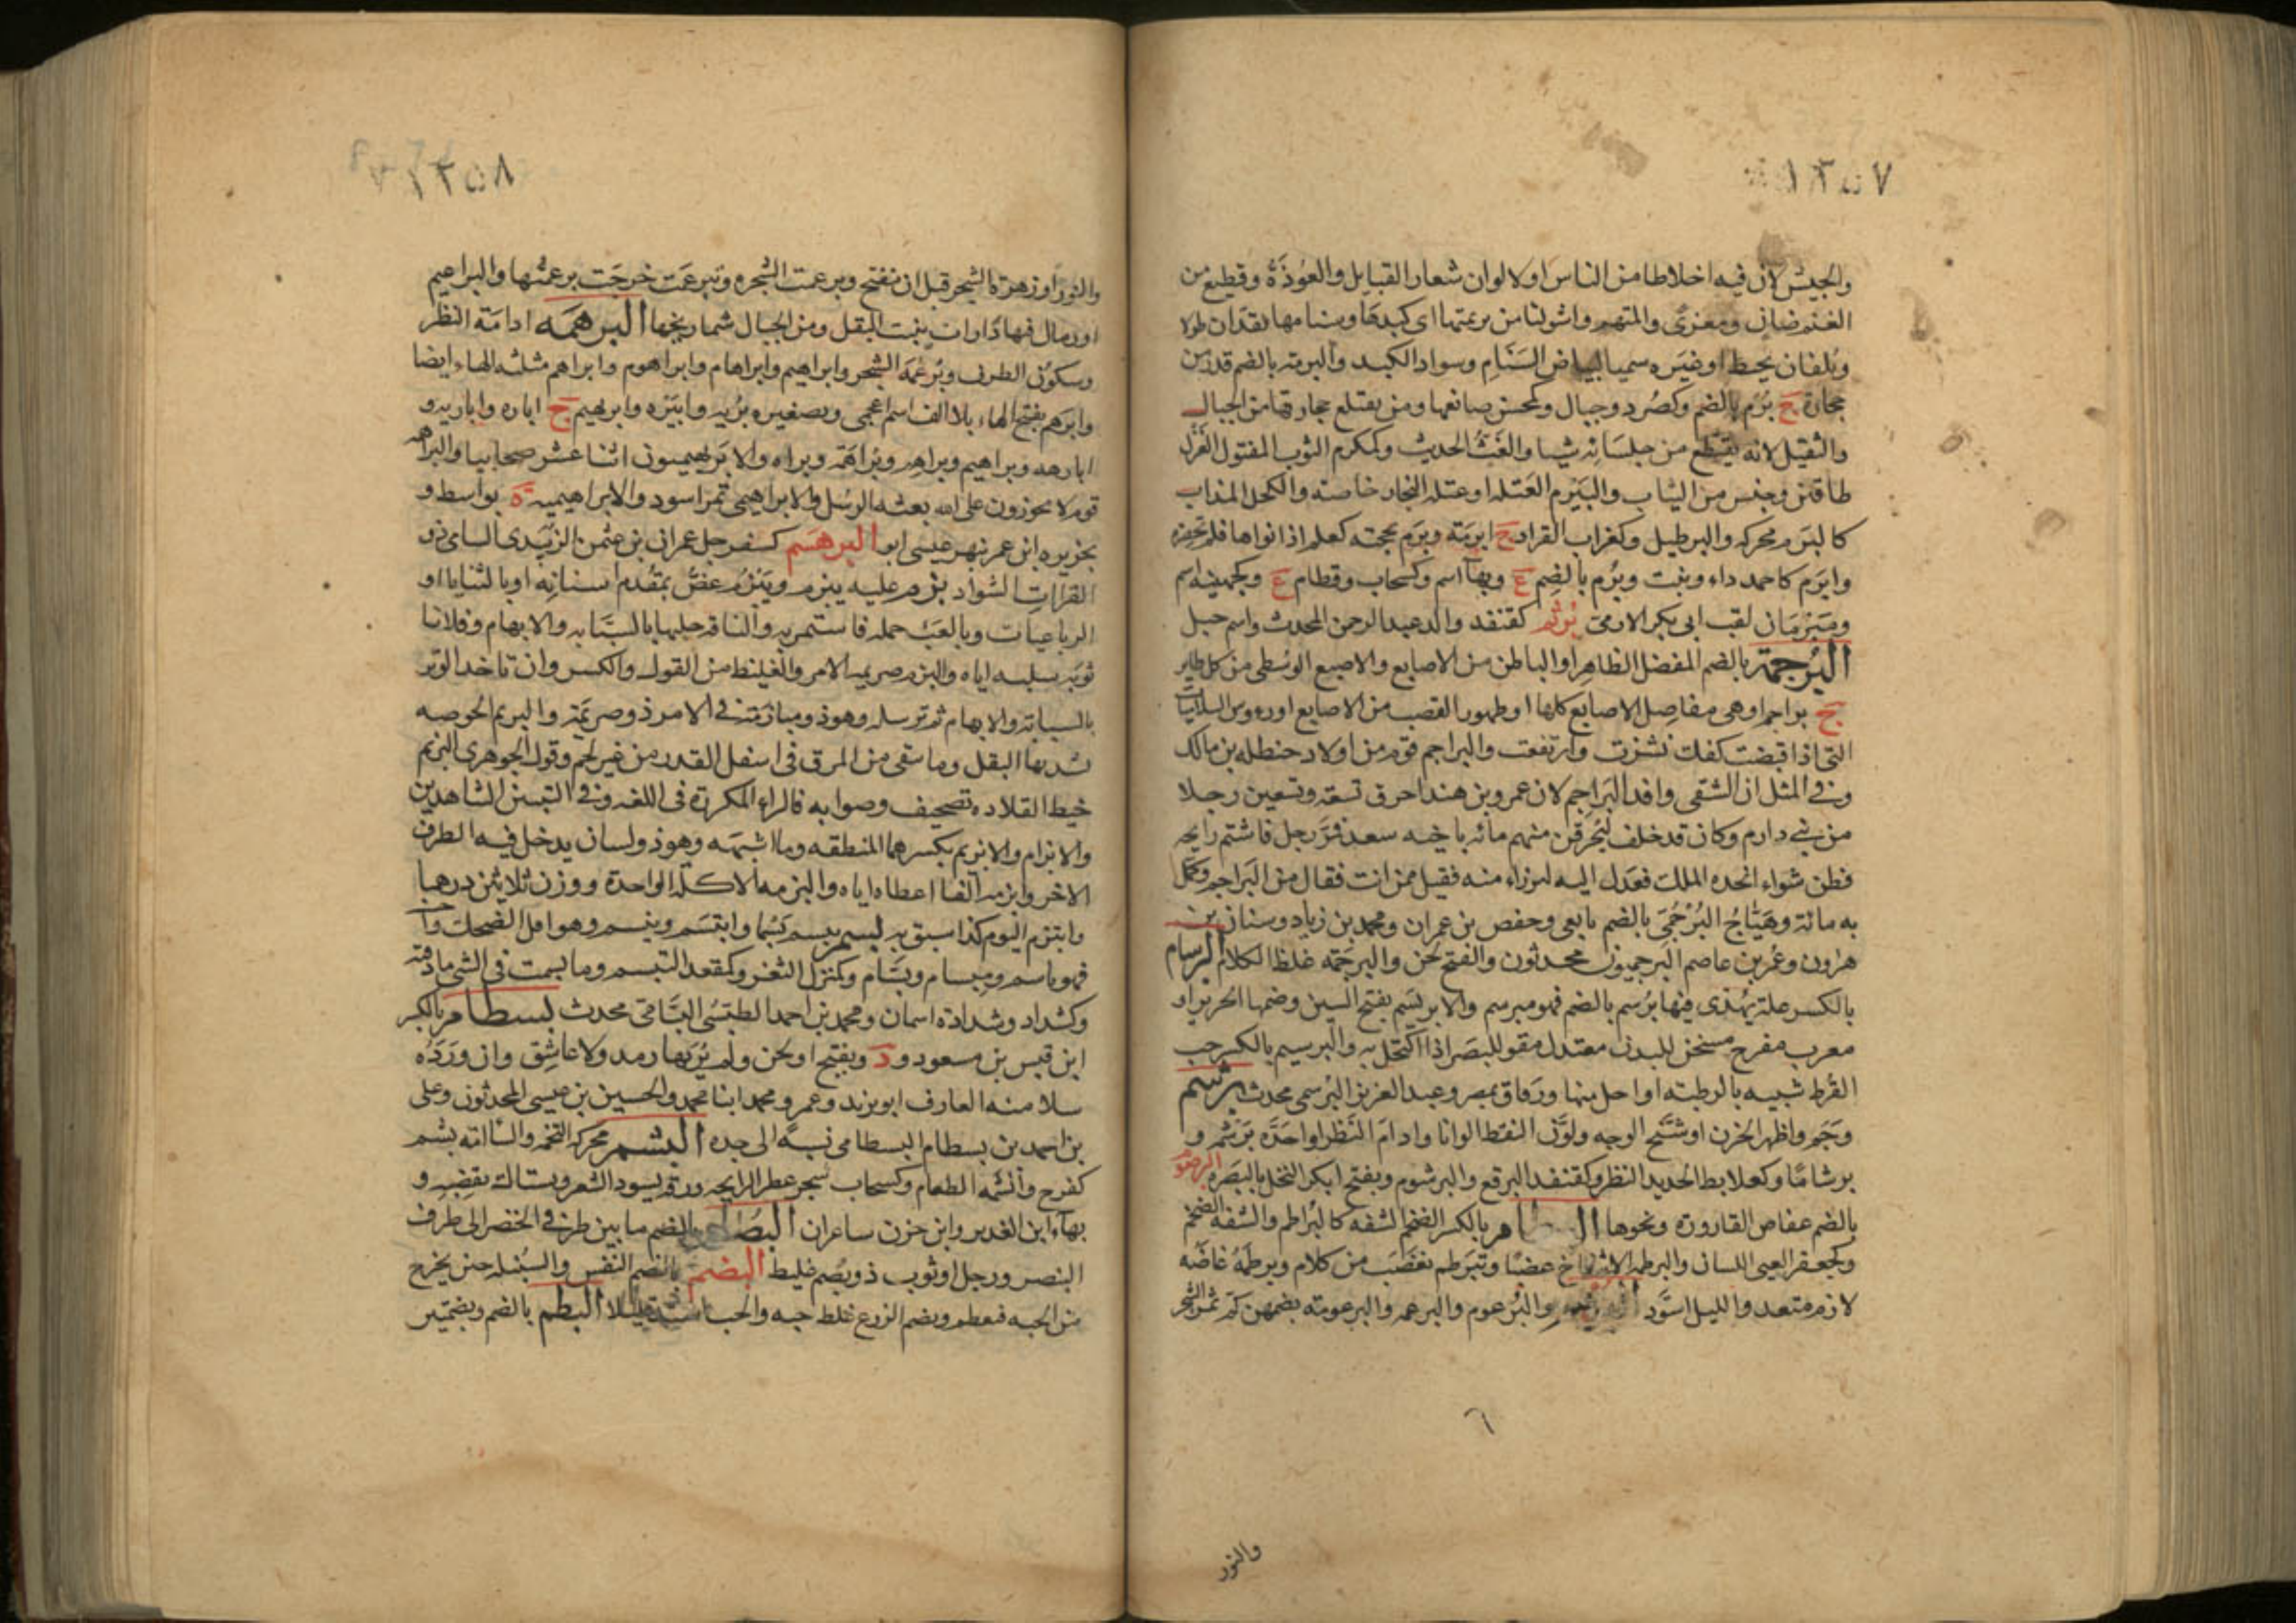 ١٣٥٧
والجيش لان فيه اخلاطا من الناس او لالوان شعار القبايل والعُوذَةُ وقطيع من
الغنم ضان ومعزى والمتهم واشولنا من بريمتها اى كبدها وسنامها يقدان طولا
ويلفان بخيط او غيره سميا لبياض السَنَامِ وسواد الكبد والبرمة بالضم قدر من
حجارة ج بُرْم بالضم وكصُرد وجبال وكمحسن صانعها ومن يقتلع حجارتها من الجبال
والثقيل لانه يقتطع من جلسَائِه شيا والغَثُّ الحديث وكمكرم الثوب المفتول الغَزْل
طاقتين وجنس من الثياب والبَيْرم العَتَله او عتلة النجار خاصة والكحل المذاب
كالبَرَم محركه والبرطيل وكغراب القراد ج ابرِمَة وبَرَم بحجته كعلم اذا نواها فلم تحضره
وابرَم كاحمد داء ونبت وبُرْم بالضم ع وبهآ اسم وكسحاب وقطام ع وكجهينة اسم
ومَبْرَمَان لقب ابى بكر الازمى بُرثُم كقنفد والد عبد الرحمن المحدث واسم جبل
البُرجُمَة بالضم المفصل الظاهر او الباطن من الاصابع والاصبع الوسطى من كل طاير
ج براجم او هى مفاصل الاصابع كلها او ظهور القصب من الاصابع او رءوس السلاميَات
التى اذا قبضت كفك نشزت وارتفعت والبراجم قوم من اولاد حنظله بن مالك
وفى المثل ان الشقى وافد البَرَاجِم لان عمرو بن هند احرق تسعة وتسعين رجلا
من بنى دارم وكان قد حلف ليُحرقن منهم مائه باخيه سعد فمَرَّ رجل فاشتم رايحه
فظن شواء اتخذه الملك فعَدَل اليه ليرزاء منه فقيل ممن انت فقال من البَراجم فكمل
به مائة وهَيَّاجُ البُرْجُمِىّ بالضم تابعى وحفص بن عمران ومحمد بن زياد وسنان بن
هرون وعُمر بن عاصم البرجميون محدثون والفتح لحن والبرجَمَه غلظ الكلام البِرسام
بالكسر علة يُهذى فيها بُرْسم بالضم فهو مبرسم والابريسَم بفتح السين وضمها الحرير او
معرب مفرح مسخن للبدن معتدل مقو للبصَر اذا اكتحل به والبرسيم بالكسر حب
القُرط شبيه بالرطبة او اجل منها وزقاق بمصر وعبد العزيز البُرسمى محدث برشم
وجَم واظهر الحزن او شَنَّج الوجه ولوَّن النقط الوانا وادام النَظر او احَدَّه بَرشَمة و
برشامًا وكعلابط الحديد النظر وكقنفد البرقع والبرشوم ويفتح ابكر النخل بالبَصَره البرصوم
بالضم عفاص القارورة ونحوها البرطام بالكسر الضخم الشفه كالبُراطم والشفة الضخم
وكجعفر العيى اللسان والبرطمة الانتفاخ غضبًا وتبَرطم تغضَّبَ من كلام وبرطمَهُ غاضَه
لازم متعد والليل اسوَّد والبُرعوم والبرعم والبرعومة بضمهن كمّ ثمر الشجر
٦
والنور
١٣٥٨
والنور او زهرة الشجر قبل ان تفتح وبرعمت الشجره وتبرعمَت خرجَت برعمتُها والبراعيم
او رمال فيها دَارات ينبت البقل ومن الجبال شماريخها البرهمَه ادامَة النظر
وسكون الطرف وبُرعُمَة الشجر وابراهيم وابراهام وابراهوم وابراهم مثلثه الهاء ايضا
وابرَهَم بفتح الهاء بلا الف اسم اعجمى وتصغيره بُرَيه وابَيْرَه وابريهيم ج اباره واباريه و
ابارهه وبراهيم وبراهم وبُراهَمَة وبراه والابرَهيميون اثنا عشر صحابيا والبراهمه
قوم لا يجوزون على الله بعثه الرسُل والابراهيمى تمر اسود والابراهيميه ة بواسط و
بجزيره ابن عمر ونهر عيسى ابو البرهسَم كسفرجل عمران بن عثمن الزبَيدى الشامى ذو
القرااتِ الشوَاذ بزم عليه يبزم ويَبْزُمُ عضَّ بمقدم اسنانِه او بالثنايا او
الرباعيات وبالعبْ حمله فاستمر به والناقة حلبها بالسَبَّابه والابهام وفلانا
ثوبَه سلبه اياه والبزم صريمه الامر والغيلظ من القول والكسر وان تاخد الوتر
بالسبابة والابهام ثم ترسله وهو ذو مبازمَة فى الامر ذو صريَمة والبزيم الخوصه
يشد بها البقل وما بقى من المرق فى اسفل القدر من غير لحم وقول الجوهرى البزيم
خيط القلاده تصحيف وصوابه فالراء المكررة فى اللغه وفى البيتين الشاهدين
والابزام والابزيم بكسرهما المنطقه وما اشبَهَه وهو ذو لسان يدخل فيه الطرف
الاخر وابزمه الفا اعطاه اياه والبزمه الاكلة الواحدة ووزن ثلاثين درهما
وابتزم اليوم كذا سبق به بسم يبسم بَسْمًا وابتسَم وتبسم وهو اقل الضحك واحسنه
فهو باسم ومبسام وبسَّام وكمنزل الثغر وكمقعد التبسم وما بسمت فى الشى ما ذقته
وكشداد وشدادة اسمان ومحمد بن احمد الطبَسُى البسَّامى محدث بسطام بالكسر
ابن قيس بن مسعود ود ويفتح او لحن ولم يُرَ بها رمد ولا عاشِق وان ورَدَهُ
سلا منه العارف ابو يزيد وعمرو محمد ابنا محمد والحسين بن عيسى المحدثون وعلى
بن احمد بن بسطام البسطامى نسبَة الى جده البشم محركه التخمه والسآامه بشم
كفرح وابشمه الطعام وكسحاب شجر عطر الرايحه ورقه يسود الشعر ويستاك بقضبه و
بهآء ابن الغدير وابن حزن شاعران البُصم بالضم ما بين طرف الخنصر الى طرف
البنصر ورجل او ثوب ذو بُصم غليظ البضم بالضم النفس والسُنبله حين يخرج
من الحبه فيعظم وبضم الزرع غلظ حبه والحب اشتد قليلا البطم بالضم وبضمتين